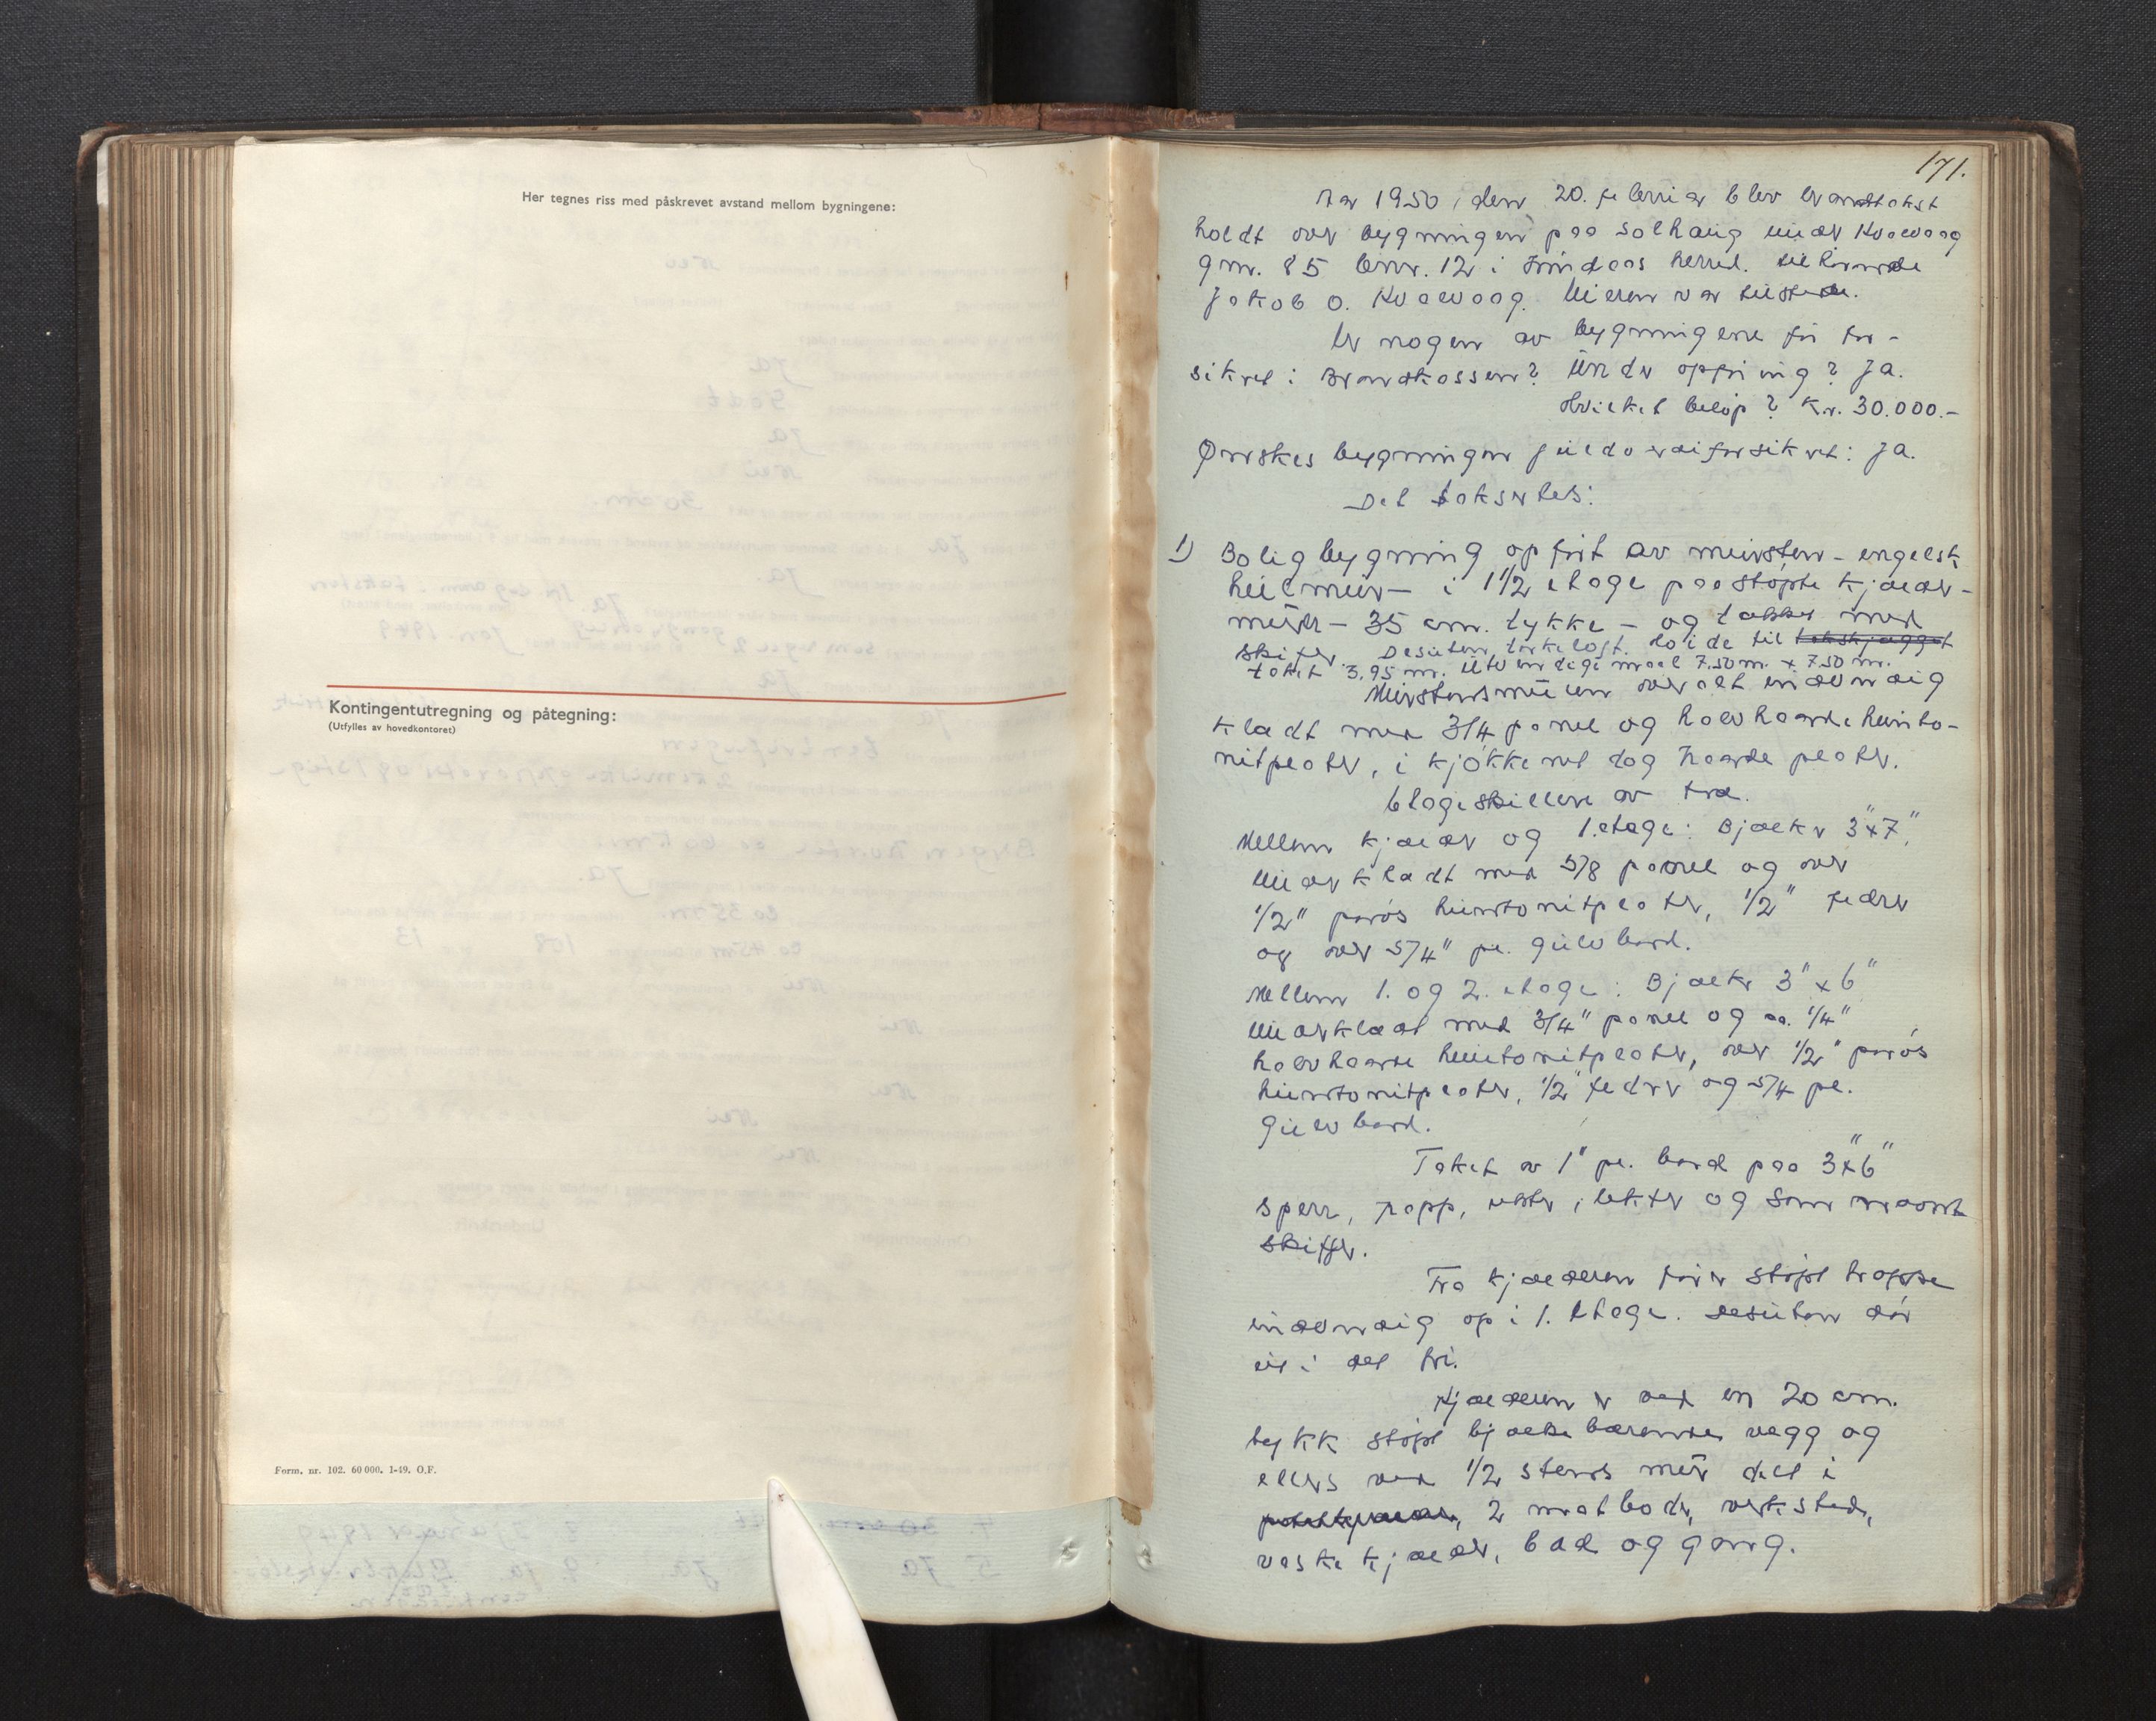 Her tegnes riss med påskrevet avstand mellom bygningene:
Kontingentutregning og påtegning:
(Utfylles av hovedkontoret)
Form. nr. 102. 60 000. 1-49. O.F.
171.
Aar 1950, den 20. februar blev brandtakst
holdt over bygningen paa Solhaug under Kvalvaag
gnr. 85 bnr. 12 i Lindaas herred. tilhørende
Jakob O. Kvalvaag. Eieren var tilstede.
Er nogen av bygningene før for-
sikret i Brandkassen? Under opføring? Ja.
Hvilket beløp? Kr. 30.000.-
Ønskes bygningen fuldverdiforsikret: Ja.
Det takseres:
1) Boligbygning opført av mursten - engelsk
hulmur - i 1 1/2 etage paa støpte kjælder-
murer - 35 cm. tykke - og tækket med
skifer. Desuten takeloft. Høide til takskjægget
taket 3,95 m. Utvendige maal 7.50 m. x 7.50 m.
Murstensmuren overalt indvendig
klædt med 3/4 panel og halvhaarde hunto-
nitplater, i kjøkkenet dog haarde plater.
Etageskillere av træ.
Mellem kjælder og 1. etage: Bjælker 3" x 7",
underklædt med 5/8 panel og over
1/2" porøs huntonitplater, 1/2" fedrer
og over 5/4" pl. gulvbord.
Mellem 1. og 2. etage: Bjælker 3" x 6"
underklædt med 3/4" panel og ca. 1/4"
halvhaarde huntonitplater, over 1/2" porøs
huntonitplater, 1/2" fedrer og 5/4 pl.
gulvbord.
Taket av 1" pl. bord paa 3" x 6"
sperr, papp, lekter og som nævnt
skiffer.
Fra kjælderen fører støpt trappe
indvendig op i 1. etage. Desuten dør
ut i det fri.
Kjælderen er ved en 20 cm.
tykk støpt bjælkebærende vegg og
ellers ved 1/2 stens mur delt i
2 matboder, verksted,
vaskekjælder, bad og gang.